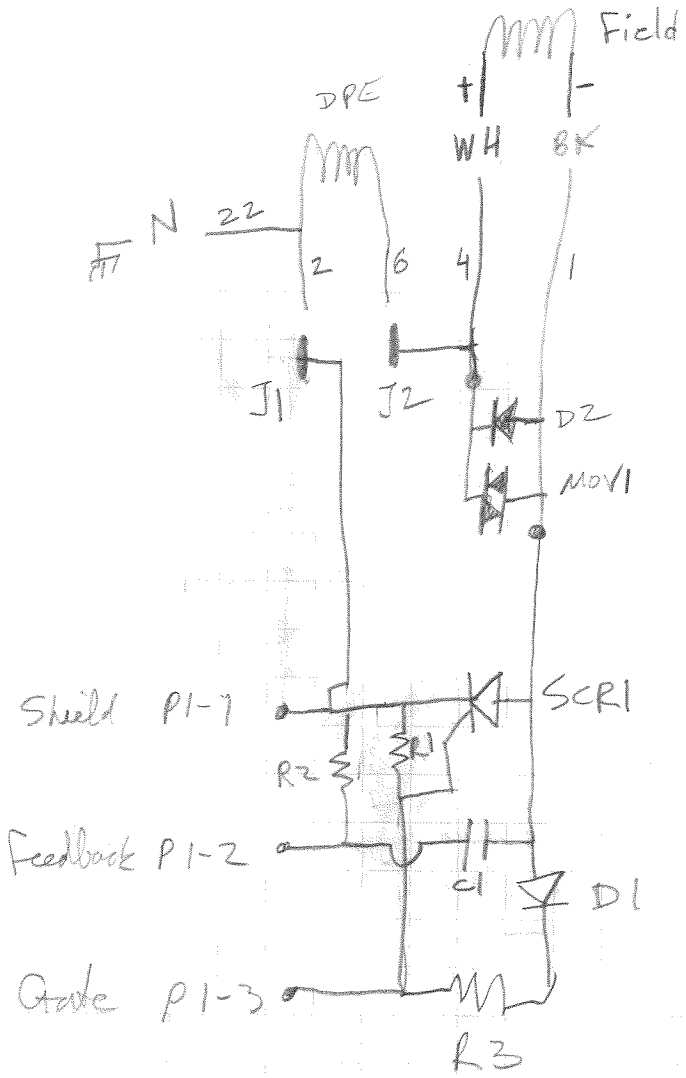 Field
DPE
+ -
WH BK
N 22
2 6 4 1
J1 J2
D2
MOV1
Shield P1-1
SCR1
R1
R2
Feedback P1-2
C1
D1
Gate P1-3
R3